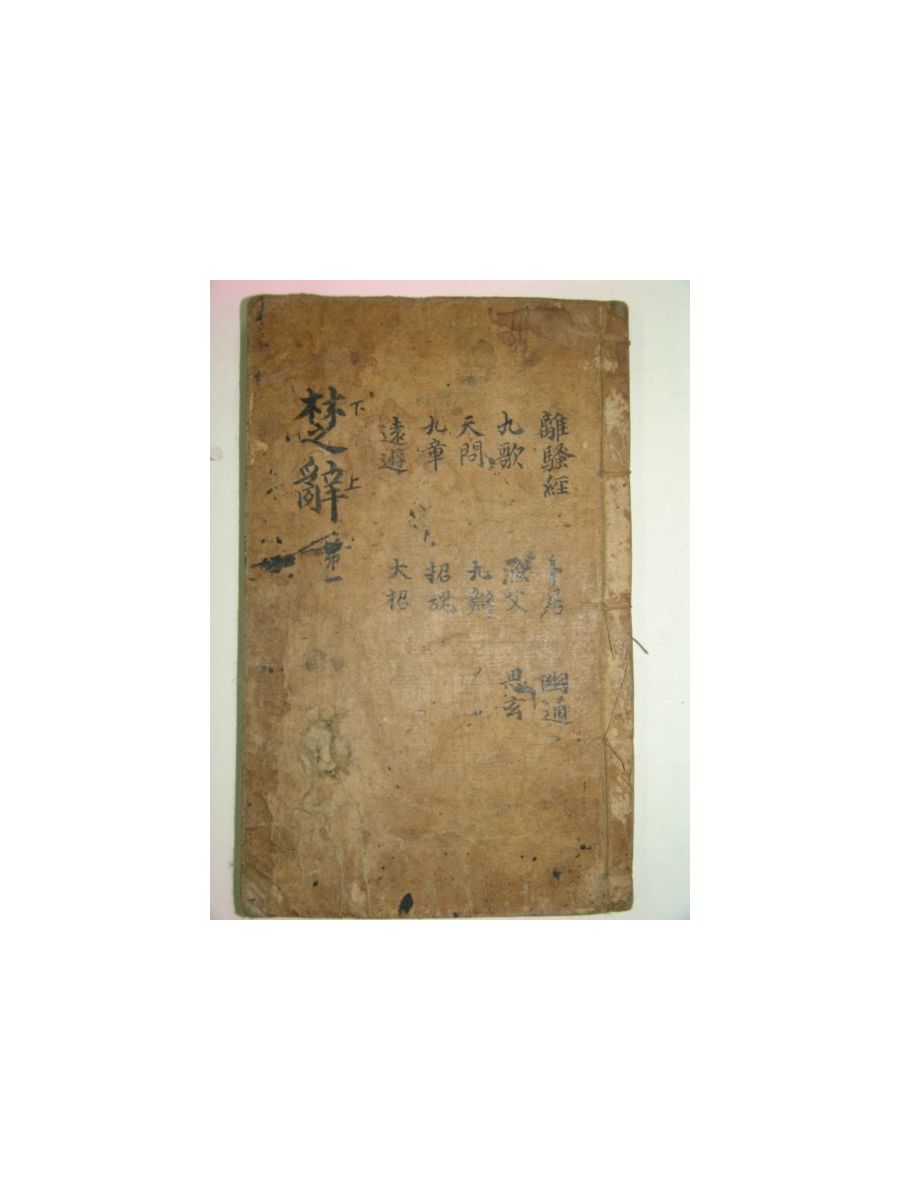 離騷經
九歌
天問
九章
遠遊
卜居
漁父
九辯
招魂
大招
幽通
思玄
楚辭
下
上
第一